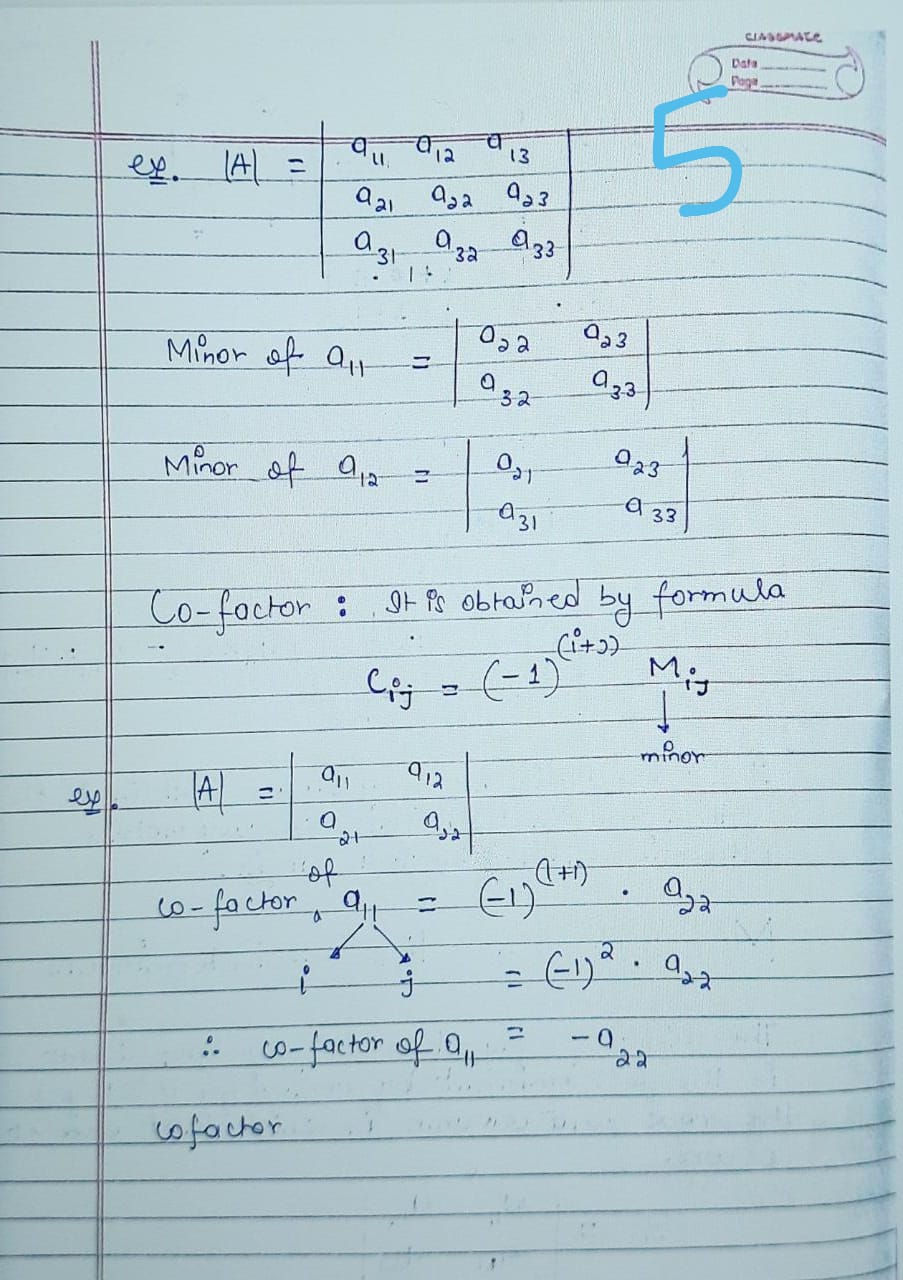 CLASSMATE
Date
Page
5
ex. |A| = | a11 a12 a13 |
| a21 a22 a23 |
| a31 a32 a33 |
Minor of a11 = | a22 a23 |
| a32 a33 |
Minor of a12 = | a21 a23 |
| a31 a33 |
Co-factor : It is obtained by formula
Cij = (-1)^(i+j) Mij
↓
minor
ex. |A| = | a11 a12 |
| a21 a22 |
co-factor of a11 = (-1)^(1+1) . a22
i j = (-1)^2 . a22
∴ co-factor of a11 = -a22
cofactor